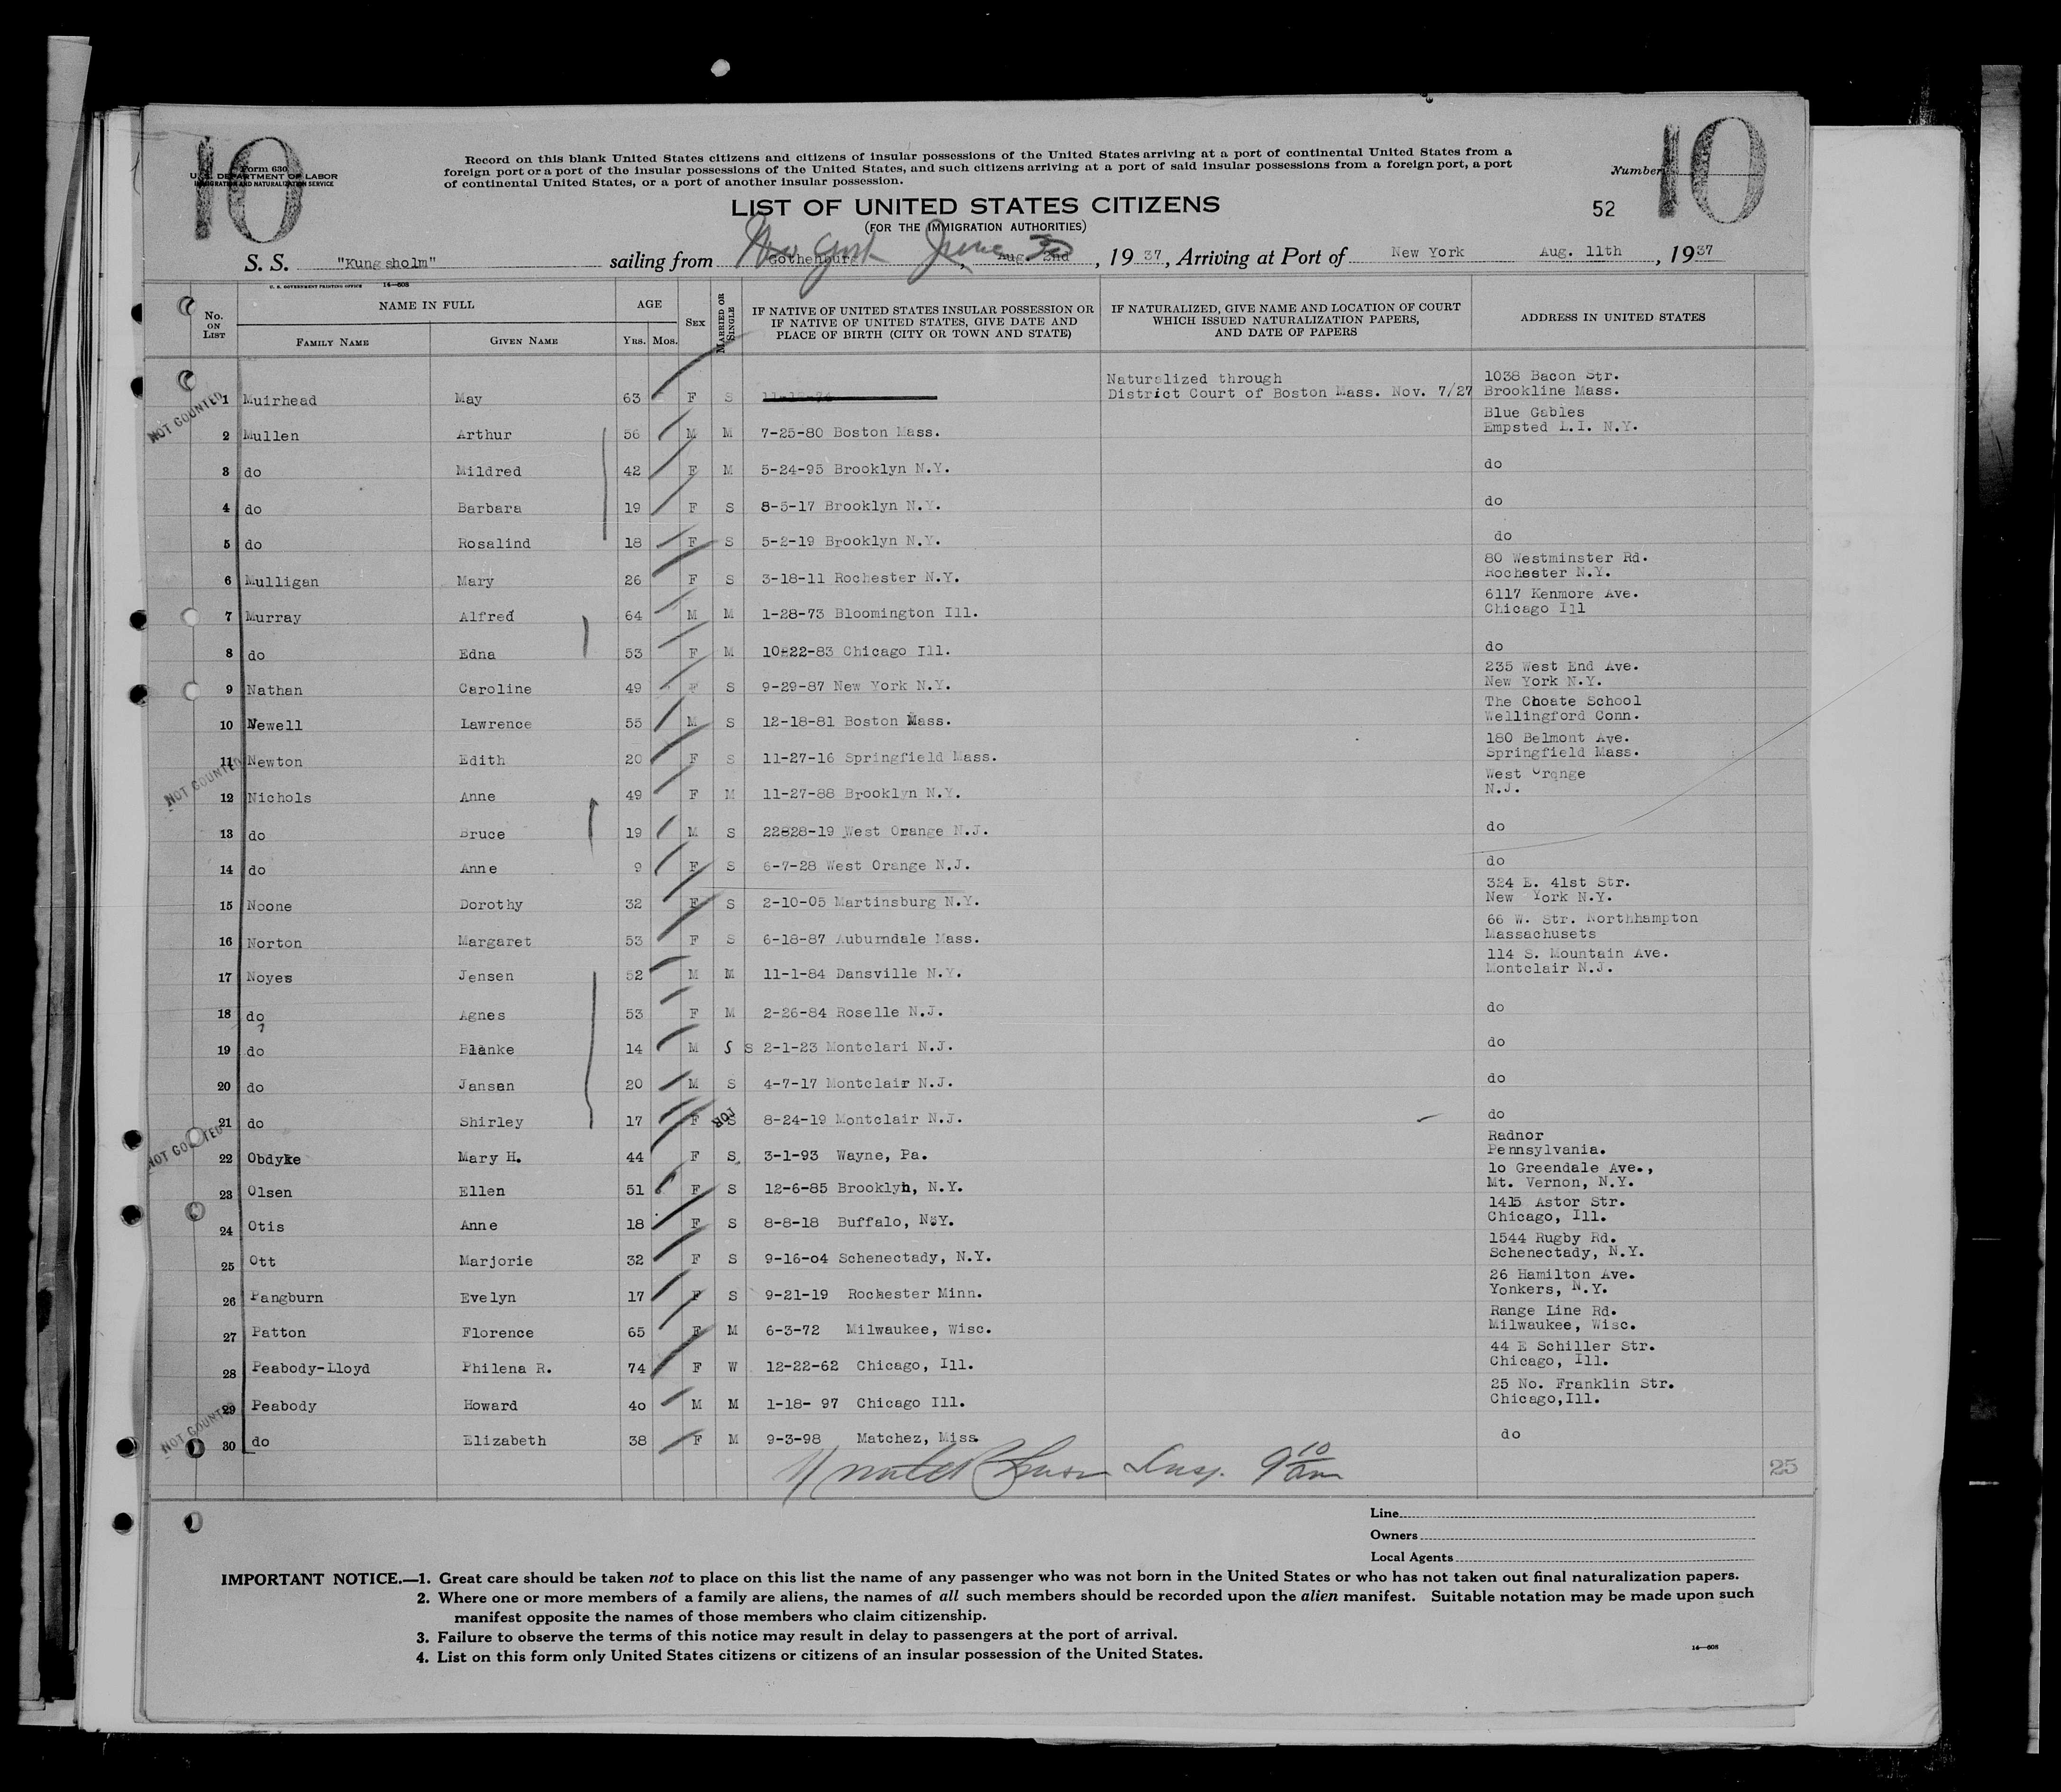 10
Form 630
U. S. DEPARTMENT OF LABOR
IMMIGRATION AND NATURALIZATION SERVICE
Record on this blank United States citizens and citizens of insular possessions of the United States arriving at a port of continental United States from a
foreign port or a port of the insular possessions of the United States, and such citizens arriving at a port of said insular possessions from a foreign port, a port
of continental United States, or a port of another insular possession.
Number
10
LIST OF UNITED STATES CITIZENS
(FOR THE IMMIGRATION AUTHORITIES)
52
New York June
S. S. "Kungsholm" sailing from Gothenburg, Aug. 2nd, 1937, Arriving at Port of New York Aug. 11th, 1937
U. S. GOVERNMENT PRINTING OFFICE 14—608
No. ON LIST
NAME IN FULL
FAMILY NAME GIVEN NAME
AGE
YRS. MOS.
SEX
MARRIED OR SINGLE
IF NATIVE OF UNITED STATES INSULAR POSSESSION OR
IF NATIVE OF UNITED STATES, GIVE DATE AND
PLACE OF BIRTH (CITY OR TOWN AND STATE)
IF NATURALIZED, GIVE NAME AND LOCATION OF COURT
WHICH ISSUED NATURALIZATION PAPERS,
AND DATE OF PAPERS
ADDRESS IN UNITED STATES
Naturalized through 1038 Bacon Str.
1 Muirhead May 63 F S District Court of Boston Mass. Nov. 7/27 Brookline Mass.
NOT COUNTED
Blue Gables
2 Mullen Arthur 56 M M 7-25-80 Boston Mass. Empsted L.I. N.Y.
3 do Mildred 42 F M 5-24-95 Brooklyn N.Y. do
4 do Barbara 19 F S 8-5-17 Brooklyn N.Y. do
5 do Rosalind 18 F S 5-2-19 Brooklyn N.Y. do
80 Westminster Rd.
6 Mulligan Mary 26 F S 3-18-11 Rochester N.Y. Rochester N.Y.
6117 Kenmore Ave.
7 Murray Alfred 64 M M 1-28-73 Bloomington Ill. Chicago Ill
8 do Edna 53 F M 10-22-83 Chicago Ill. do
235 West End Ave.
9 Nathan Caroline 49 F S 9-29-87 New York N.Y. New York N.Y.
The Choate School
10 Newell Lawrence 55 M S 12-18-81 Boston Mass. Wellingford Conn.
180 Belmont Ave.
11 Newton Edith 20 F S 11-27-16 Springfield Mass. Springfield Mass.
NOT COUNTED
West Orange
12 Nichols Anne 49 F M 11-27-88 Brooklyn N.Y. N.J.
13 do Bruce 19 M S 22828-19 West Orange N.J. do
14 do Anne 9 F S 6-7-28 West Orange N.J. do
324 E. 41st Str.
15 Noone Dorothy 32 F S 2-10-05 Martinsburg N.Y. New York N.Y.
66 W. Str. Northhampton
16 Norton Margaret 53 F S 6-18-87 Auburndale Mass. Massachusets
114 S. Mountain Ave.
17 Noyes Jensen 52 M M 11-1-84 Dansville N.Y. Montclair N.J.
18 do Agnes 53 F M 2-26-84 Roselle N.J. do
19 do Blanke 14 M S S 2-1-23 Montclari N.J. do
20 do Jansen 20 M S 4-7-17 Montclair N.J. do
21 do Shirley 17 F S 8-24-19 Montclair N.J. do
NOT COUNTED
Radnor
22 Obdyke Mary H. 44 F S 3-1-93 Wayne, Pa. Pennsylvania.
1o Greendale Ave.,
23 Olsen Ellen 51 F S 12-6-85 Brooklyn, N.Y. Mt. Vernon, N.Y.
1415 Astor Str.
24 Otis Anne 18 F S 8-8-18 Buffalo, N.Y. Chicago, Ill.
1544 Rugby Rd.
25 Ott Marjorie 32 F S 9-16-o4 Schenectady, N.Y. Schenectady, N.Y.
26 Hamilton Ave.
26 Pangburn Evelyn 17 F S 9-21-19 Rochester Minn. Yonkers, N.Y.
Range Line Rd.
27 Patton Florence 65 F M 6-3-72 Milwaukee, Wisc. Milwaukee, Wisc.
44 E Schiller Str.
28 Peabody-Lloyd Philena R. 74 F W 12-22-62 Chicago, Ill. Chicago, Ill.
25 No. Franklin Str.
29 Peabody Howard 4o M M 1-18- 97 Chicago Ill. Chicago,Ill.
NOT COUNTED
30 do Elizabeth 38 F M 9-3-98 Matchez, Miss. do
Insp. 9 10 am
25
Line
Owners
Local Agents
IMPORTANT NOTICE.—1. Great care should be taken not to place on this list the name of any passenger who was not born in the United States or who has not taken out final naturalization papers.
2. Where one or more members of a family are aliens, the names of all such members should be recorded upon the alien manifest. Suitable notation may be made upon such
manifest opposite the names of those members who claim citizenship.
3. Failure to observe the terms of this notice may result in delay to passengers at the port of arrival.
4. List on this form only United States citizens or citizens of an insular possession of the United States.
14—608